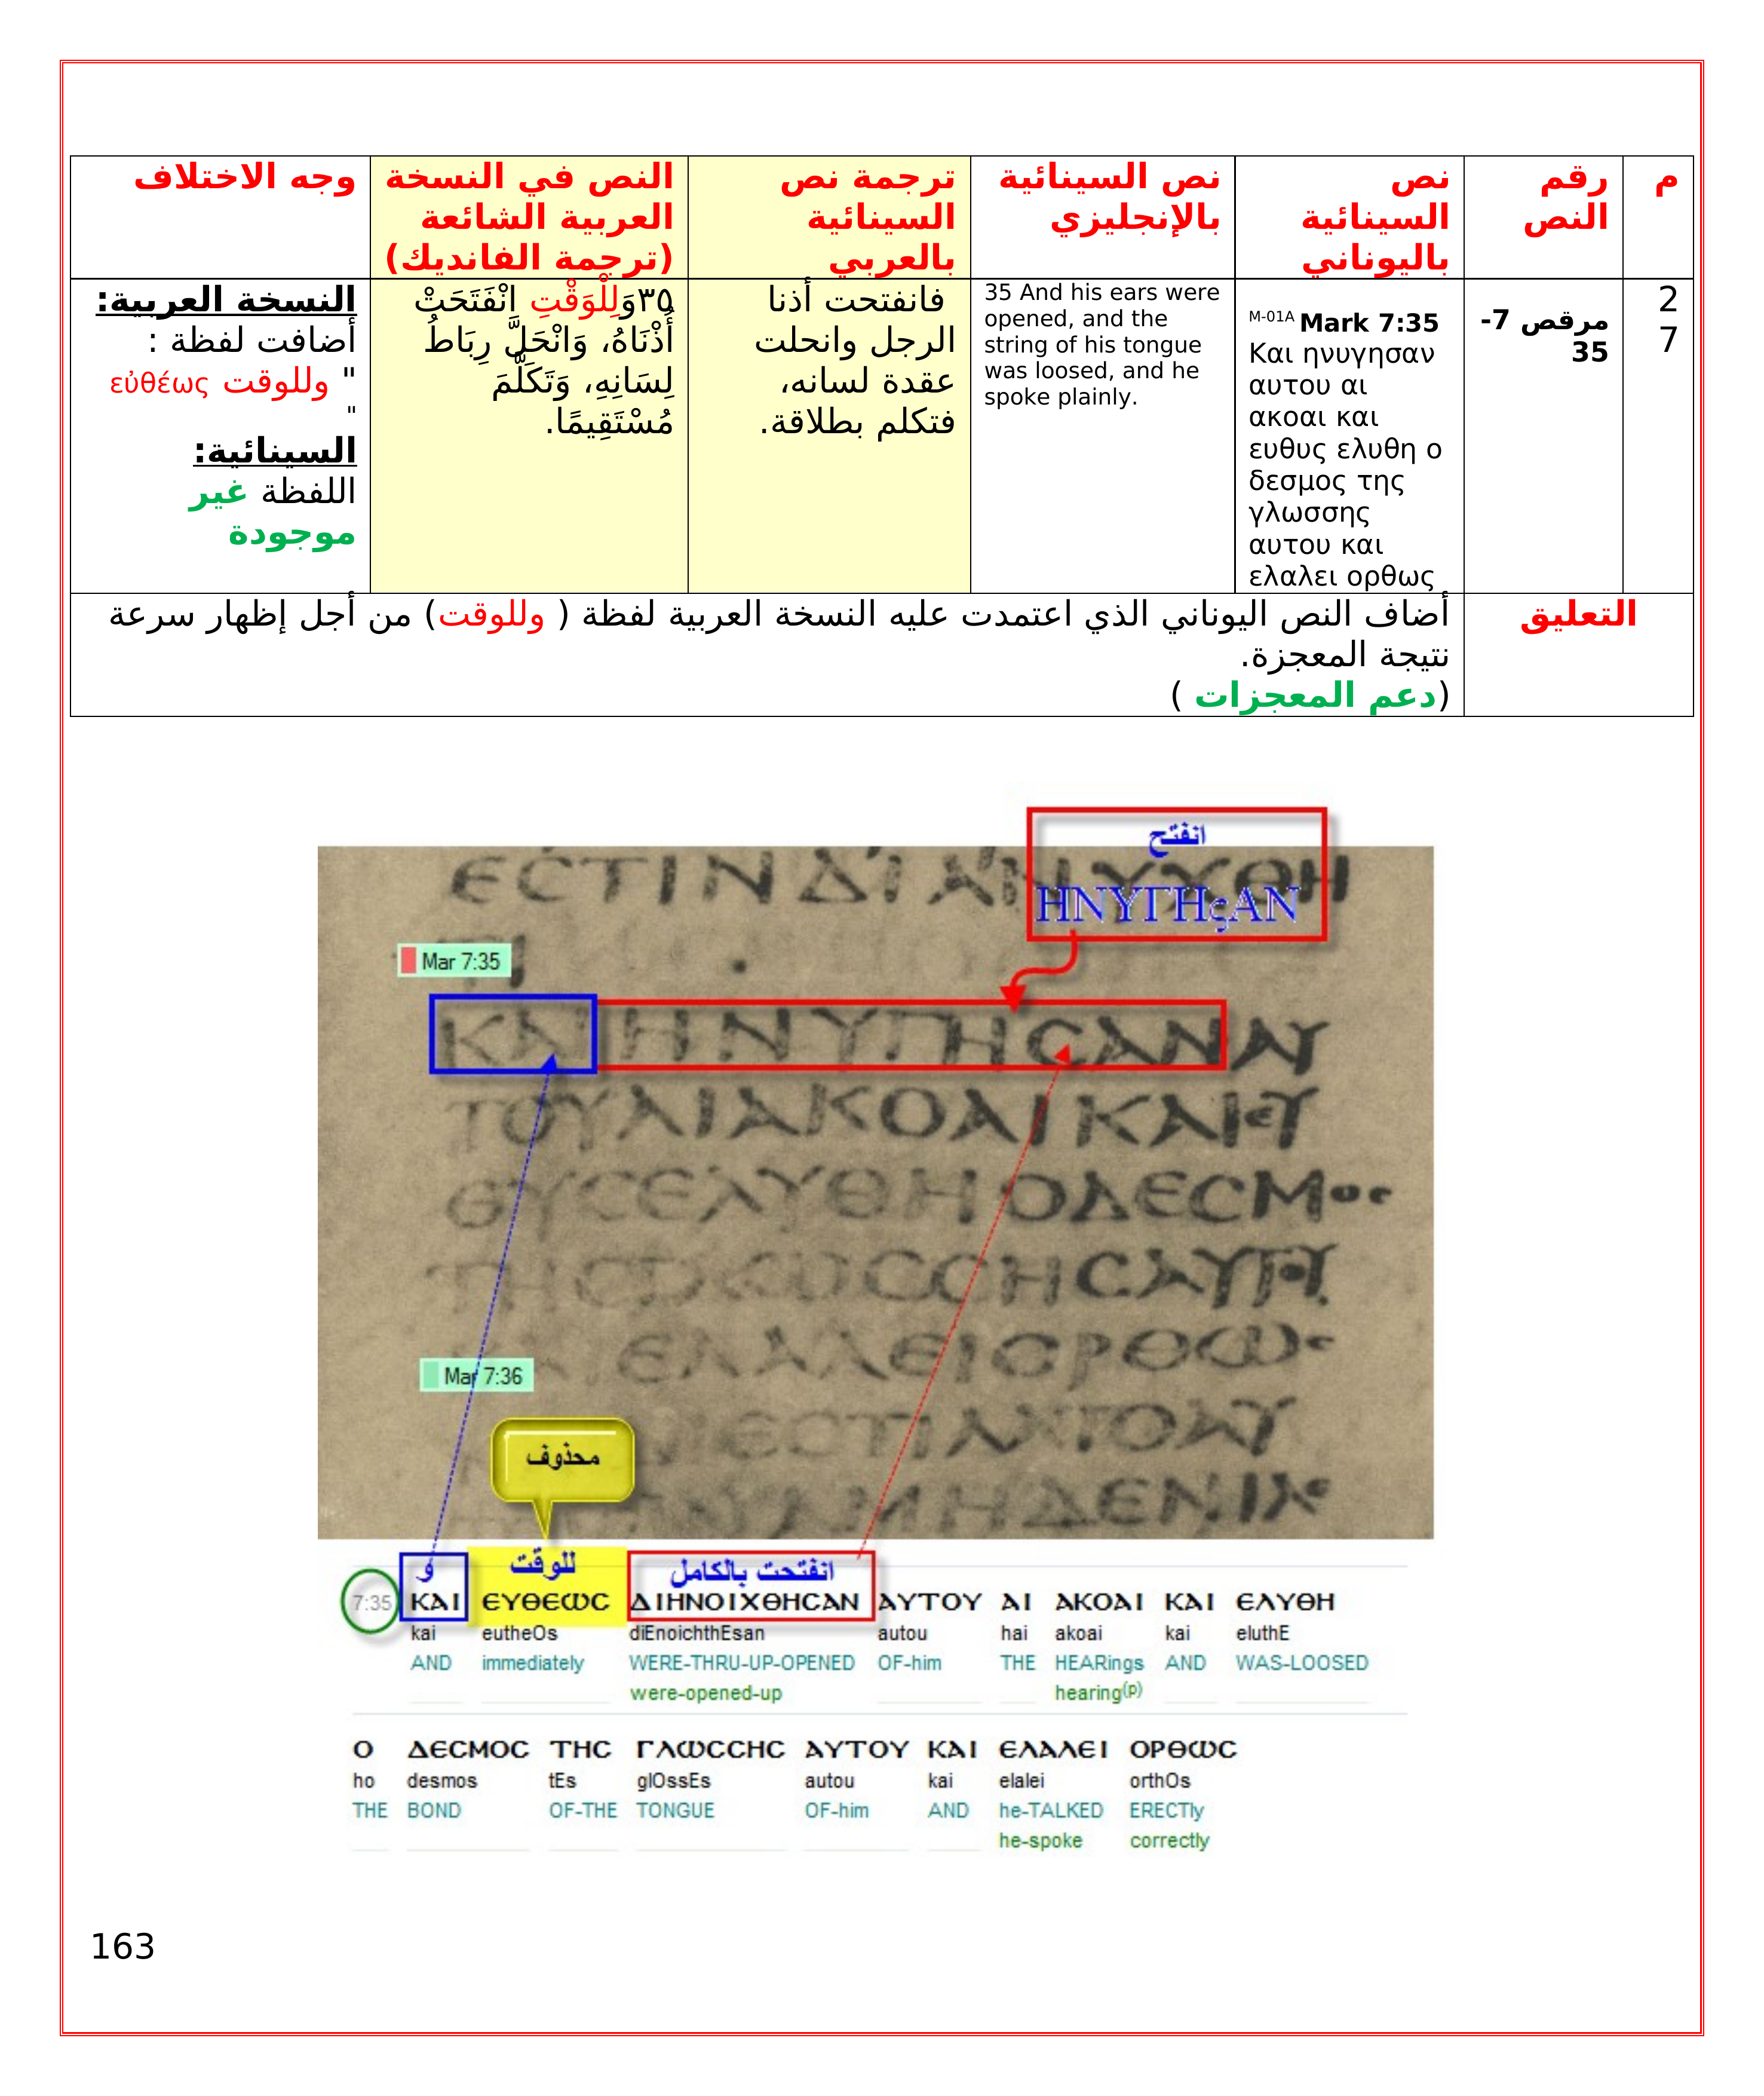 م
رقم
النص
نص
السينائية
باليوناني
نص السينائية
بالإنجليزي
ترجمة نص
السينائية
بالعربي
النص في النسخة
العربية الشائعة
(ترجمة الفانديك)
وجه الاختلاف
2
7
مرقص 7-
35
M-01A Mark 7:35
Και ηνυγησαν
αυτου αι
ακοαι και
ευθυς ελυθη ο
δεσμος της
γλωσσης
αυτου και
ελαλει ορθως
35 And his ears were
opened, and the
string of his tongue
was loosed, and he
spoke plainly.
فانفتحت أذنا
الرجل وانحلت
عقدة لسانه،
فتكلم بطلاقة.
٣٥وَلِلْوَقْتِ انْفَتَحَتْ
أُذْنَاهُ، وَانْحَلَّ رِبَاطُ
لِسَانِهِ، وَتَكَلَّمَ
مُسْتَقِيمًا.
النسخة العربية:
أضافت لفظة :
" وللوقت εὐθέως
"
السينائية:
اللفظة غير
موجودة
التعليق
أضاف النص اليوناني الذي اعتمدت عليه النسخة العربية لفظة ( وللوقت) من أجل إظهار سرعة
نتيجة المعجزة.
(دعم المعجزات )
انفتح
ΗΝΥΓΗςΑΝ
ΕCΤΙΝΔΙΑΝΥΧΘΗ
ΤΙ
Mar 7:35
ΚΑΙΗΝΥΓΗCΑΝΑΥ
ΤΟΥΑΙΑΚΟΑΙΚΑΙΕΥ
ΘΥCΕΛΥΘΗΟΔΕCΜΟC
ΤΗCΓΛΩCCΗCΑΥΤΟΥ
ΕΛΑΛΕΙΟΡΘΩC
Mar 7:36
محذوف
و
للوقت
انفتحت بالكامل
7:35 ΚΑΙ ΕΥΘΕΩC ΔΙΗΝΟΙΧΘΗCΑΝ ΑΥΤΟΥ ΑΙ ΑΚΟΑΙ ΚΑΙ ΕΛΥΘΗ
kai eutheOs diEnoichthEsan autou hai akoai kai eluthE
AND immediately WERE-THRU-UP-OPENED OF-him THE HEARings AND WAS-LOOSED
were-opened-up hearing(p)
Ο ΔΕCΜΟC ΤΗC ΓΛΩCCΗC ΑΥΤΟΥ ΚΑΙ ΕΛΑΛΕΙ ΟΡΘΩC
ho desmos tEs glOssEs autou kai elalei orthOs
THE BOND OF-THE TONGUE OF-him AND he-TALKED ERECTly
he-spoke correctly
163